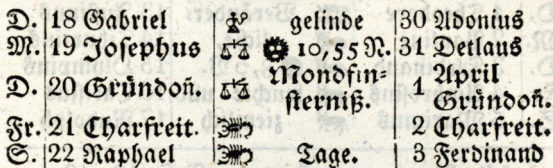 D. 18 Gabriel gelinde 30 Adonius
M. 19 Josephus 10,55 N. 31 Detlaus
Mondfin- 1 April
D. 20 Gründoñ. sterniß. Gründoñ.
Fr. 21 Charfreit. 2 Charfreit.
S. 22 Raphael Tage. 3 Ferdinand